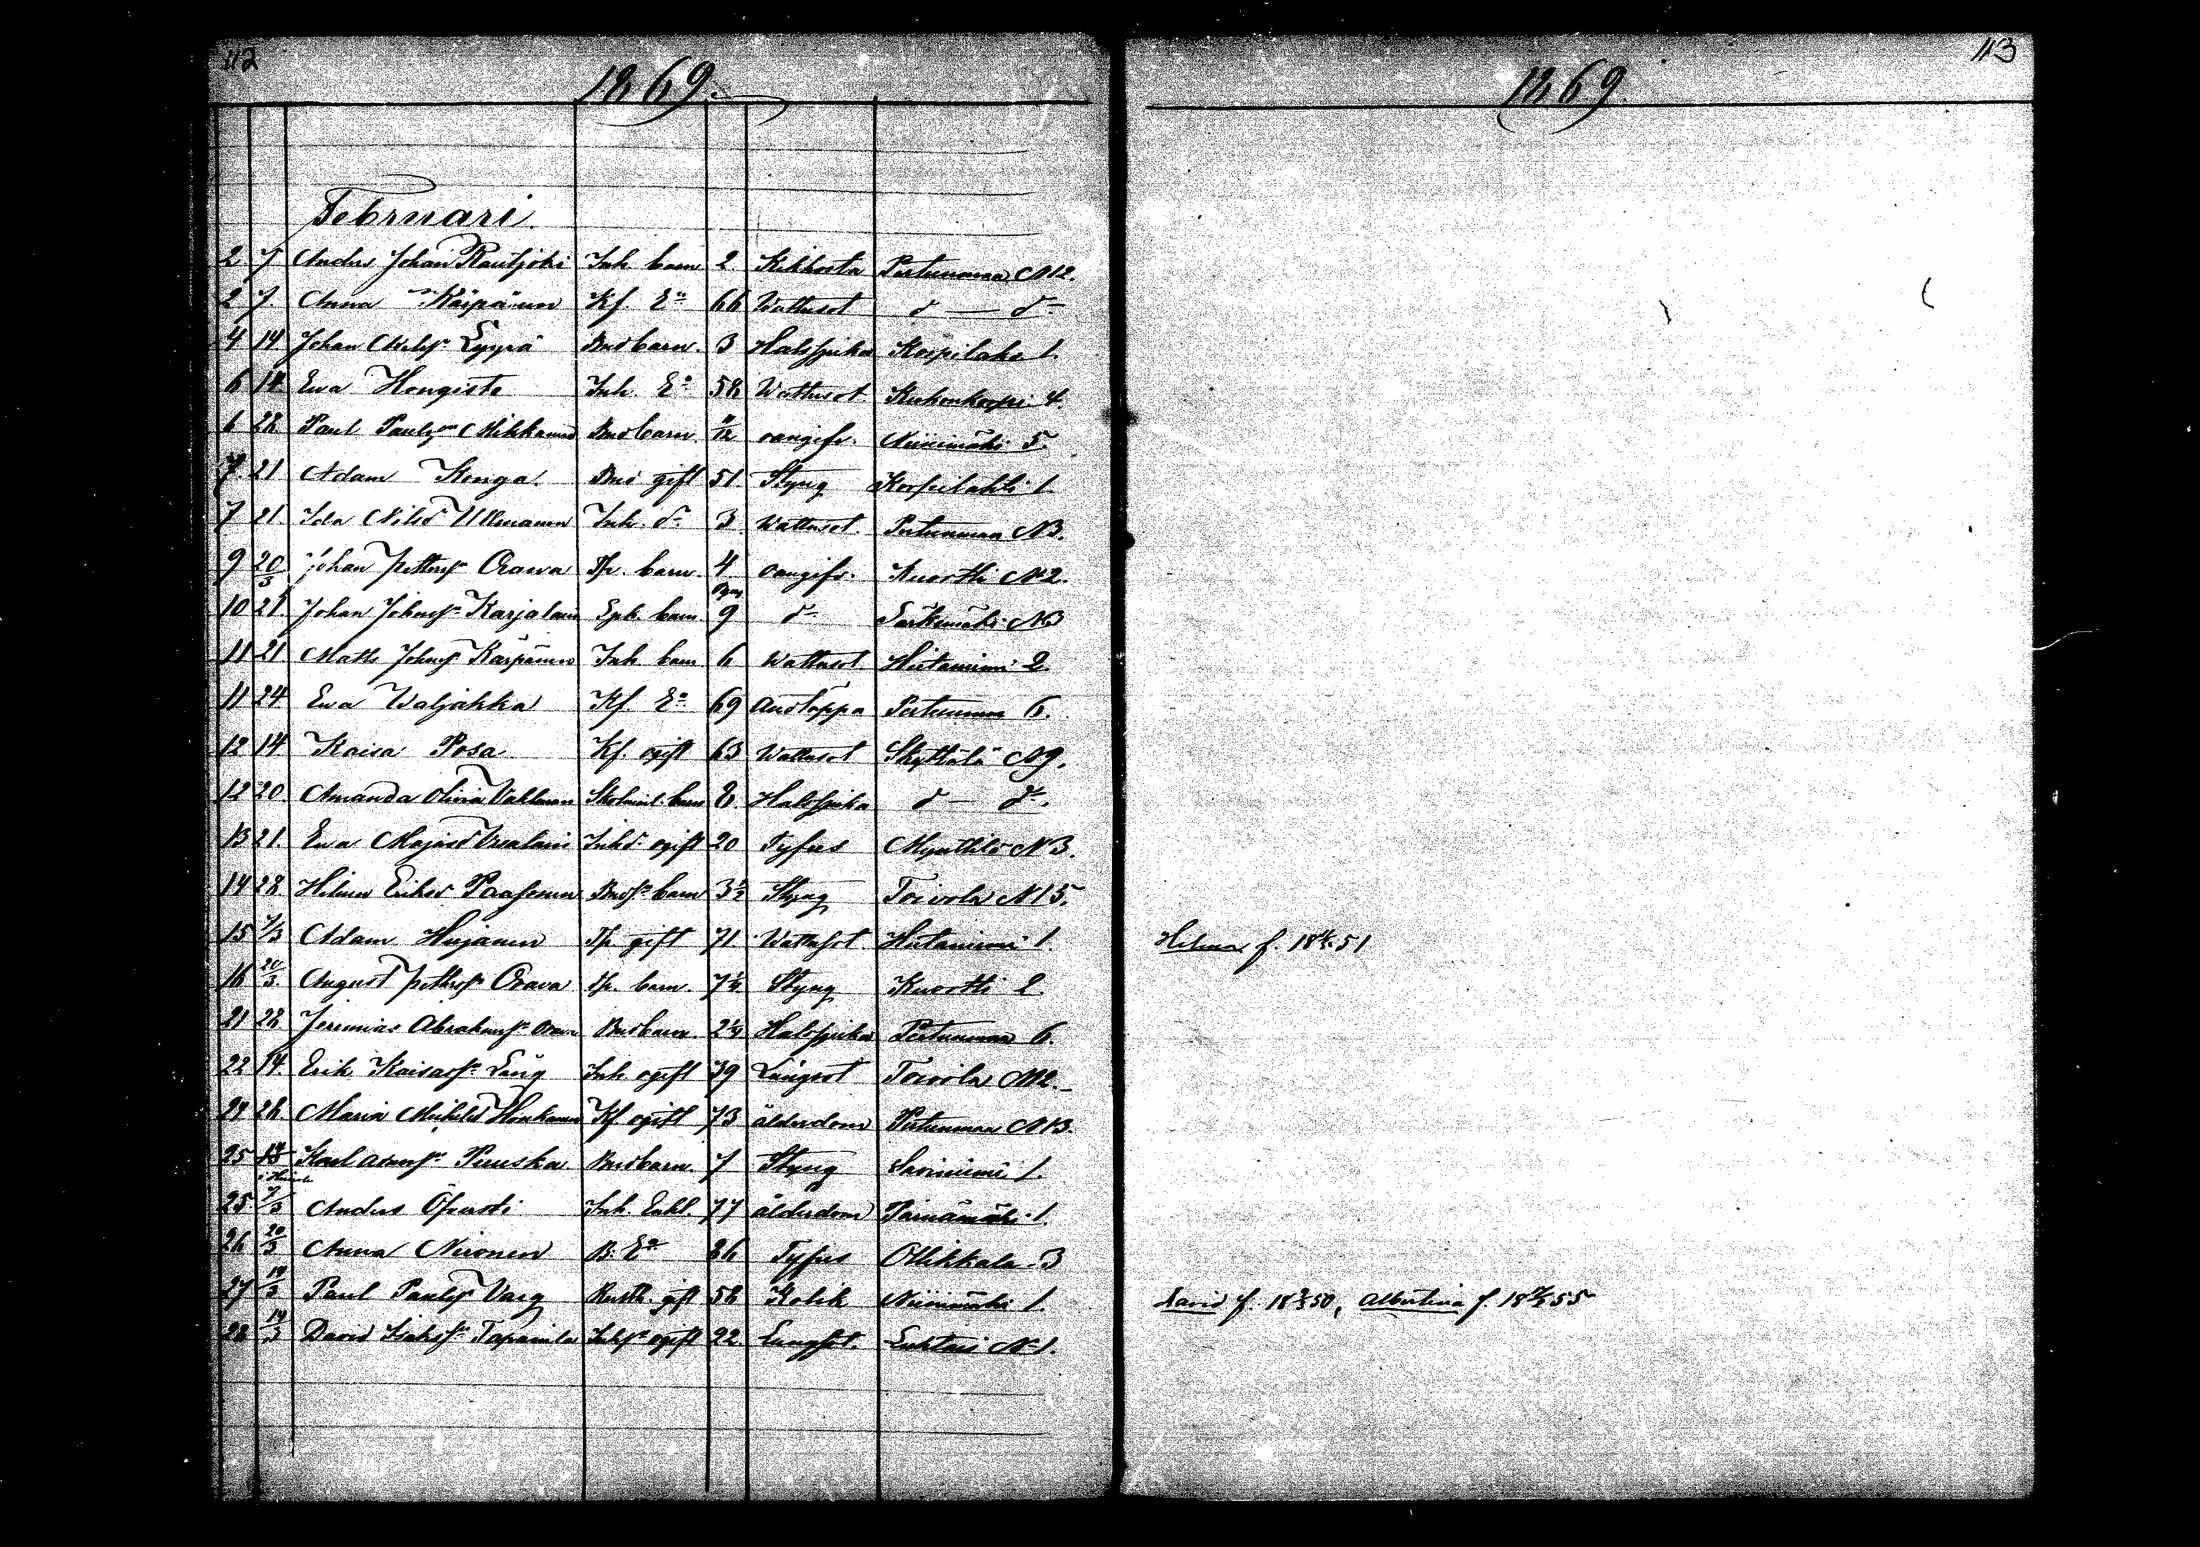 112
1869.
Februari.
2 7 Anders Johan Rautjoki Inh. barn 2 Kikhosta Pertunmaa N12.
2 7. Anna Käpäinen Kf. Ea 66 Wattusot d — d
4 14 Johan Matss. Lyyrä Bndbarn. 3 Halssjuka Korpilaks 1.
6 14 Ewa Hongisto Inh. Ea 58 Wattusot Kuhonkorpi 4.
6 28 Paul Paulson Mikkonen Bndbarn 9/12 oangifv. Niinimäki 5.
7. 21 Adam Konga. Bnd gift 51 Styng Korpilahti 1.
7 21. Ida Nilsd Ullmanen Inh. d 3 Wattusot. Pertunmaa N3.
9 20/3 Johan Petterss Orawa Tp. barn. 4 oangifv. Kuortti N2.
10 21. Johan Johnss Karjalain 9 d Särkemäki N3
11 21. Matts Johnss Karpainen Inh barn 6 Wattusot Hietaniemi 2
11 24 Ewa Waljakka Kf Ea 69 Andtäppa Pertunmaa 6.
12 14 Kaisa Posa. Kf. ogift 63 Wattusot Skyttälä N9.
12 20. Amanda Olivia Vallman barn 8. Halssjuka d — d.
13 21. Ewa Majasd Ursalain Inhd. ogift 20 Tyfus Myrttilä N3.
14 28 Helena Eriksd Paasonen Bnds barn 3½ Styng Toivola N15.
15 7/3 Adam Hujanen Tp gift 71 Wattusot Hietaniemi 1.
Helena f. 18 51
16 20/3. August Petterss Orava Tp. barn. 7¼ Styng Kuortti 2.
21 28 Jeremias Abrahamss Orava Bndbarn. 2¼ Halssjuka Pertunmaa 6.
22 14. Erik Kaisass Läng Inh ogift 39 Lungsot Toivola N12.
24 28. Maria Mickelsd Honkanen Kf ogift 73 ålderdom Pertunmaa N13.
25 Karl Adamss. Puuska Bndbarn. 7 Styng Savinimi 1.
25 7/3 Anders Öfversti Inh. Enkl. 77 ålderdom Parnamäki 1.
26 20/3 Anna Nironen B. Ea 86 Tyfus Ollikkala 3
27 14/3 Paul Paulss Varg Rusth. gift 58 Kolik Niinimäki 1.
28 14/3 David Isakss Tapanila Inhs ogift 22. Lungsot. Luhtari N1.
113
1869.
David f. 18 50, Albertina f. 18 55